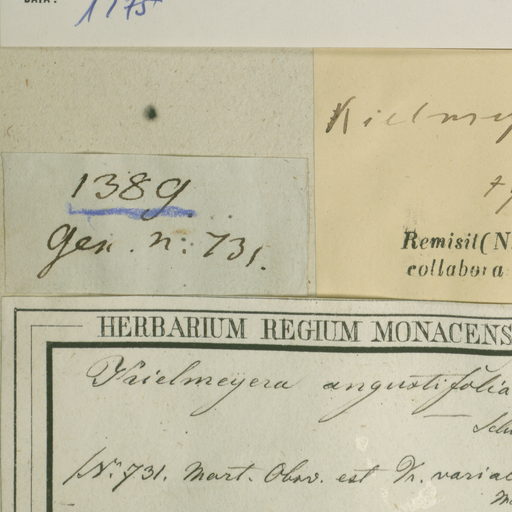 DATA:
1175
Kielmey
1389.
Gen. n: 731.
Remisit (N
collabora
HERBARIUM REGIUM MONACENS
Kielmeyera angustifolia
N: 731. Mart. Obsv. est K. variab